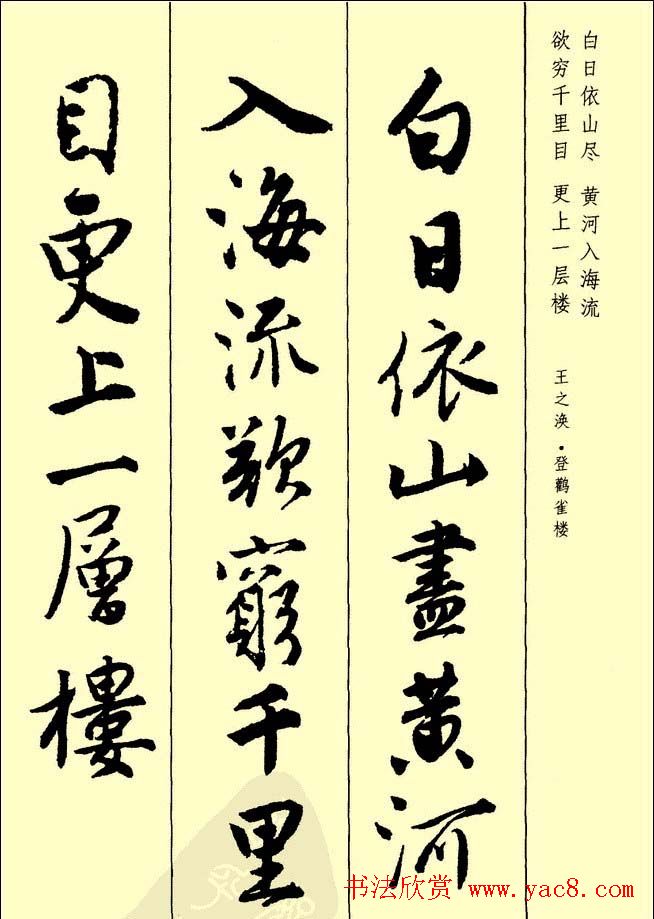 白日依山尽 黄河入海流
欲穷千里目 更上一层楼
王之涣·登鹳雀楼
白日依山盡黄河
入海流欲窮千里
目更上一層樓
书法欣赏 www.yac8.com